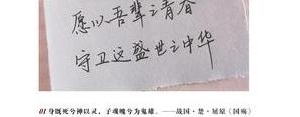 愿以吾辈之青春
守卫这盛世之中华
01 身既死兮神以灵，子魂魄兮为鬼雄。——战国·楚·屈原《国殇》